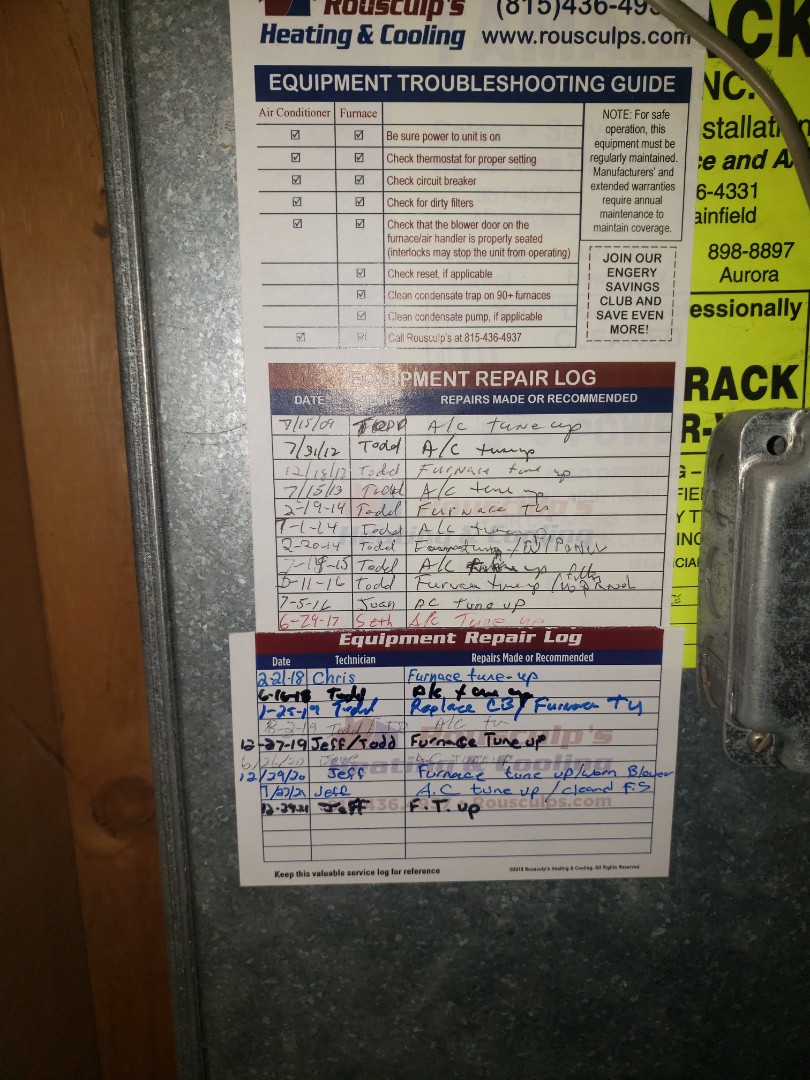 Rousculp's (815)436-49
Heating & Cooling www.rousculps.com
EQUIPMENT TROUBLESHOOTING GUIDE
Air Conditioner Furnace
☑ ☑ Be sure power to unit is on
☑ ☑ Check thermostat for proper setting
☑ ☑ Check circuit breaker
☑ ☑ Check for dirty filters
☑ ☑ Check that the blower door on the
furnace/air handler is properly seated
(interlocks may stop the unit from operating)
☑ Check reset, if applicable
☑ Clean condensate trap on 90+ furnaces
☑ Clean condensate pump, if applicable
☑ ☑ Call Rousculp's at 815-436-4937
NOTE: For safe
operation, this
equipment must be
regularly maintained.
Manufacturers' and
extended warranties
require annual
maintenance to
maintain coverage.
JOIN OUR
ENGERY
SAVINGS
CLUB AND
SAVE EVEN
MORE!
EQUIPMENT REPAIR LOG
DATE REPAIRS MADE OR RECOMMENDED
7/15/09 TODD A/C tune up
7/31/12 Todd A/C tuneup
Todd Furnace tune up
7/15/13 Todd A/C tune up
2-19-14 Todd Furnace TU
Todd A/C
2-20-14 Todd
Todd A/C
Todd Furnace tune up
7-5-16 Juan AC tune up
6-29-17 Seth A/C Tune up
Equipment Repair Log
Date Technician Repairs Made or Recommended
2-21-18 Chris Furnace tune-up
6-16-18 Todd A/C tune up
1-25-19 Todd Replace CB/ Furnace TU
8-2-19 Todd A/C
12-27-19 Jeff/Todd Furnace Tune up
6/26/20
12/29/20 Jeff Furnace tune up/worn Blower
Jeff A.C tune up/cleand F.S
12-29-21 Jeff F.T. up
Rousculp's
Heating & Cooling
Rousculps.com
Keep this valuable service log for reference ©2018 Rousculp's Heating & Cooling, All Rights Reserved
ACK
NC.
stallation
ce and A
6-4331
ainfield
898-8897
Aurora
essionally
RACK